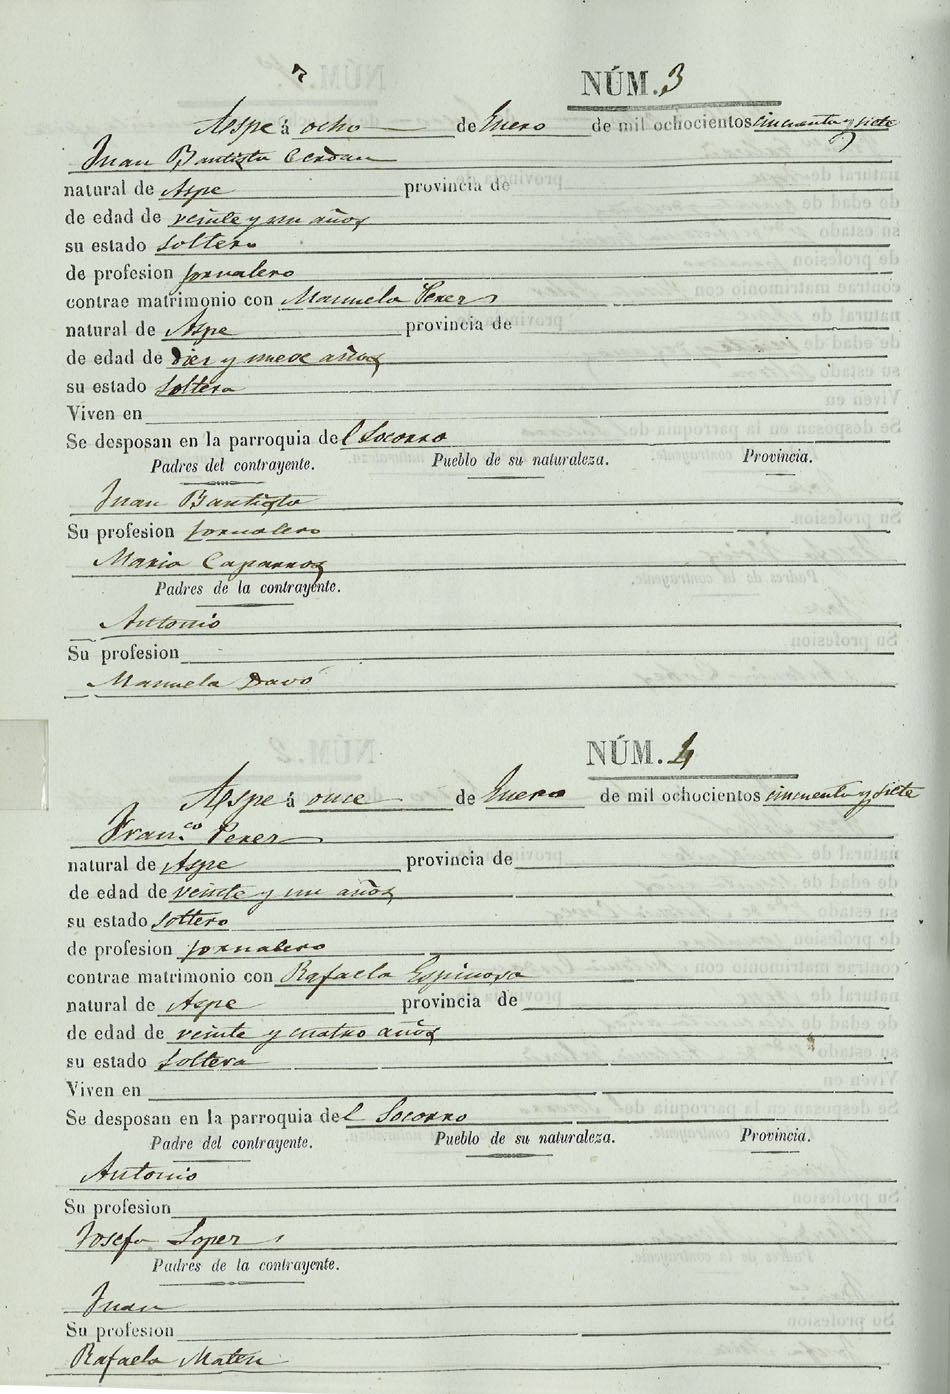 NÚM. 3
Aspe á ocho de Enero de mil ochocientos cincuenta y siete
Juan Bautista Cerdan
natural de Aspe provincia de
de edad de veinte y un años
su estado soltero
de profesion jornalero
contrae matrimonio con Manuela Perez
natural de Aspe provincia de
de edad de diez y nueve años
su estado soltera
Viven en
Se desposan en la parroquia del Socorro
Padres del contrayente. Pueblo de su naturaleza. Provincia.
Juan Bautista
Su profesion jornalero
Maria Caparros
Padres de la contrayente.
Antonio
Su profesion
Manuela Davó
NÚM. 4
Aspe á once de Enero de mil ochocientos cincuenta y siete
Fran.co Perez
natural de Aspe provincia de
de edad de veinte y un años
su estado soltero
de profesion jornalero
contrae matrimonio con Rafaela Espinosa
natural de Aspe provincia de
de edad de veinte y cuatro años
su estado soltera
Viven en
Se desposan en la parroquia del Socorro
Padre del contrayente. Pueblo de su naturaleza. Provincia.
Antonio
Su profesion
Josefa Lopez
Padres de la contrayente.
Juan
Su profesion
Rafaela Mateu